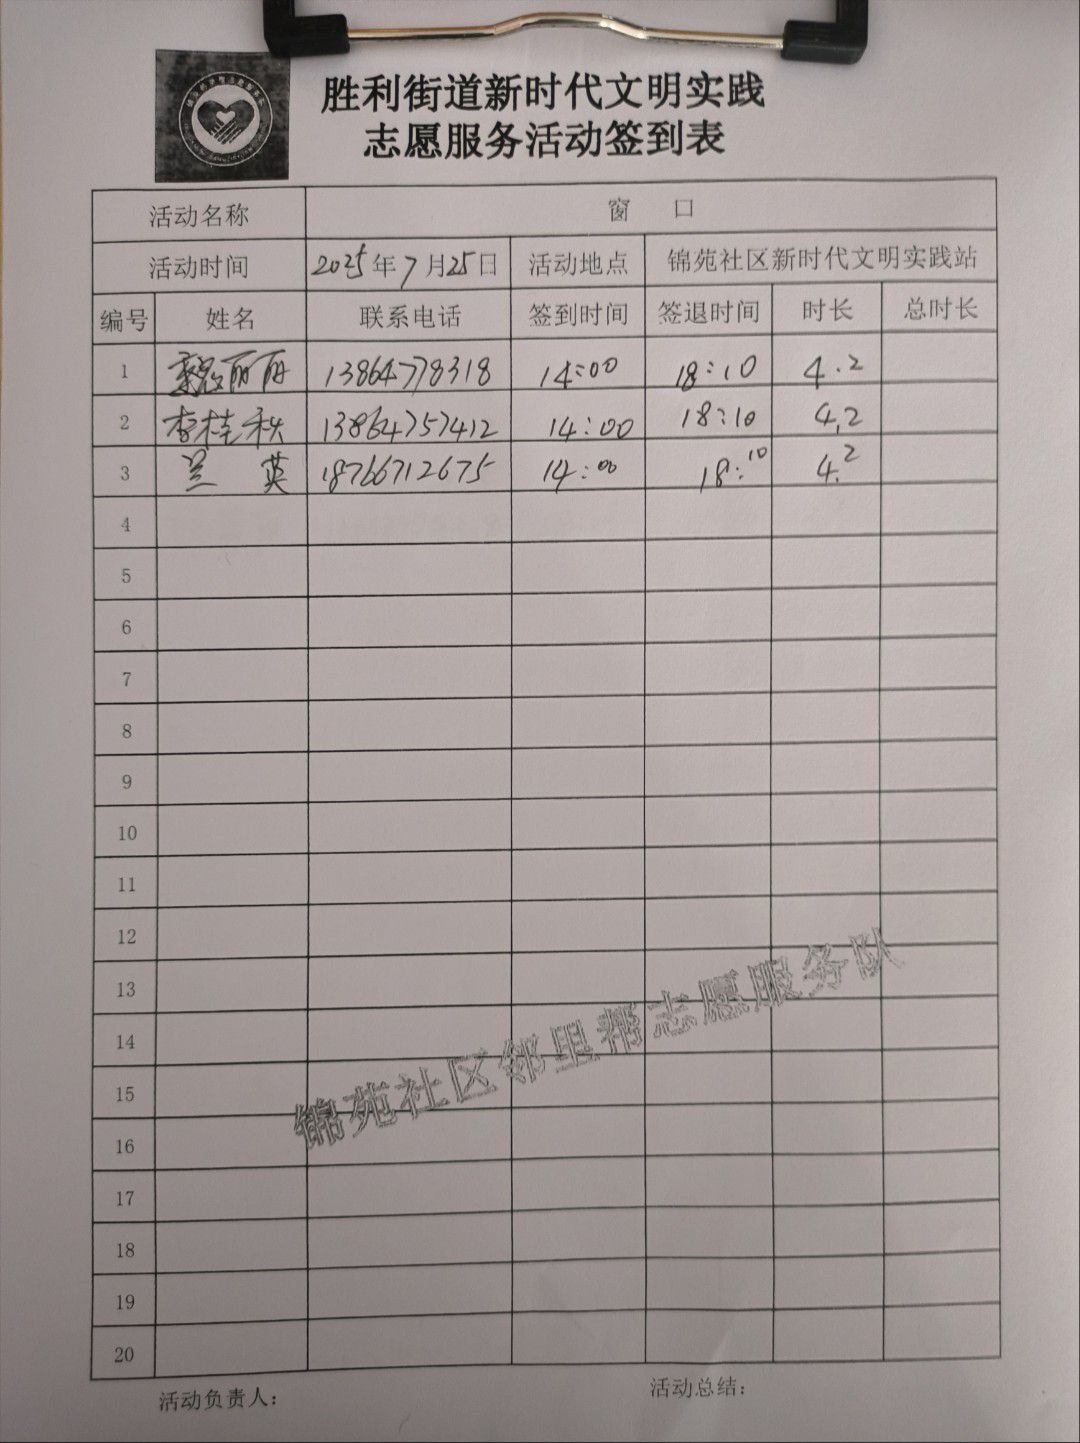 胜利街道新时代文明实践
志愿服务活动签到表
活动名称 窗 口
活动时间 2025年7月25日 活动地点 锦苑社区新时代文明实践站
编号 姓名 联系电话 签到时间 签退时间 时长 总时长
1 魏丽丽 13864778318 14:00 18:10 4.2
2 李桂秋 13864757412 14:00 18:10 4.2
3 兰英 18766712675 14:00 18:10 4.2
4
5
6
7
8
9
10
11
12
13
14
15
16
17
18
19
20
锦苑社区邻里帮志愿服务队
活动负责人: 活动总结: